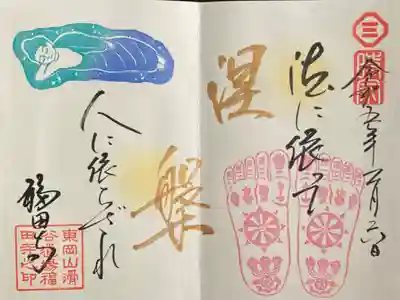 令和五年二月六日
法に依って
涅槃
人に依らざれ
福田寺
東岡山滑
田寺之印